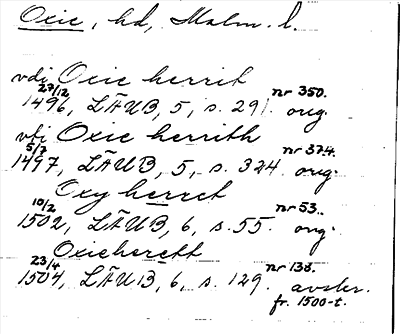 Oxie, hd, Malm. l.
vdi Oxie herrit
27/12 1496, LÄUB, 5, s. 291. nr 350. orig.
vti Oxie herrith
5/7 1497, LÄUB, 5, s. 324. nr 374. orig.
Oxy herret
10/2 1502, LÄUB, 6, s. 55. nr 53. orig.
Oxieherett
23/4 1504, LÄUB, 6, s. 129. nr 138. avskr.
fr. 1500-t.